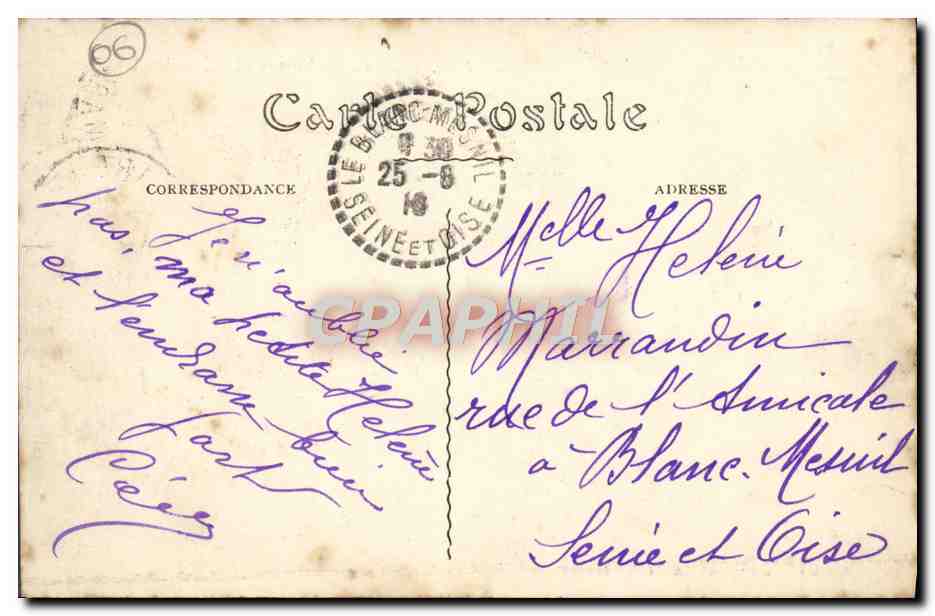 06
Carte Postale
LE BLANC-MESNIL
9 30
25 -8
16
SEINE ET OISE
CORRESPONDANCE
Je n'oublie
pas, ma petite Helène
et t'embrasse bien
fort
ADRESSE
Melle Helène
Marrandin
rue de l'Amicale
à Blanc-Mesnil
Seine et Oise
CPAPHIL